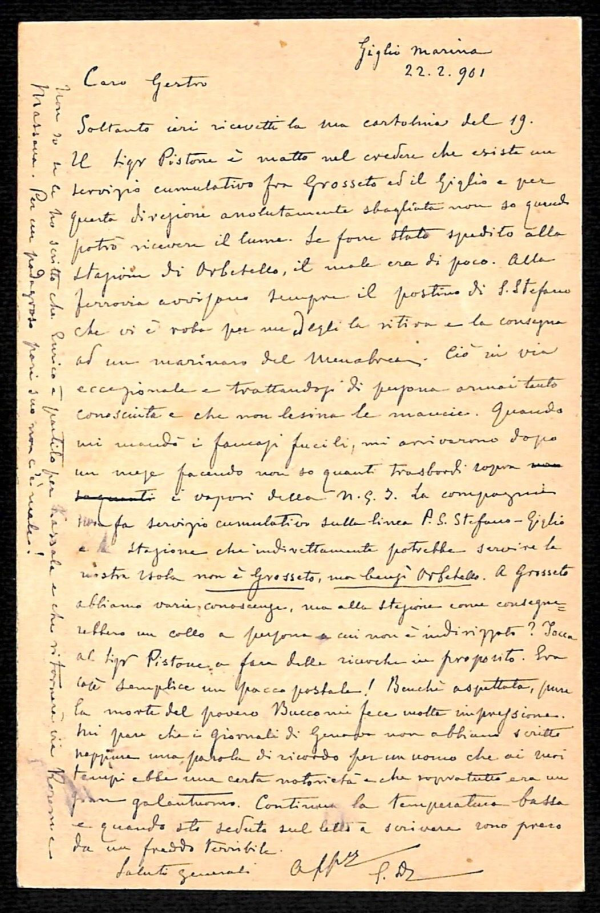 Giglio Marina
22.2.901
Caro Gestro
Soltanto ieri ricevetti la sua cartolina del 19.
Il Sigr Pistone è matto nel credere che esista un
servizio cumulativo fra Grosseto ed il Giglio e per
questa direzione assolutamente sbagliata non so quando
potrò ricevere il lume. Se fosse stato spedito alla
stazione di Orbetello, il male era di poco. Alla
ferrovia avvisano sempre il postino di S. Stefano
che vi è roba per me, egli la ritira e la consegna
ad un marinaro del Menabrea. Ciò in via
eccezionale e trattandosi di persona assai tanto
conosciuta e che non lesina le mancie. Quando
mi mandò i famosi fucili, mi arrivarono dopo
un mese facendo non so quanti trasbordi sopra non
so quanti i vapori della N.G.I. La compagnia
non fa servizio cumulativo sulla linea P.S. Stefano-Giglio
e la stazione che indirettamente potrebbe servire la
nostra isola non è Grosseto, ma bensì Orbetello. A Grosseto
abbiamo varie conoscenze, ma alla stazione come consegne=
rebbero un collo a persona a cui non è indirizzato? Tocca
al Sigr Pistone a fare delle ricerche in proposito. Era
così semplice un pacco postale! Benchè aspettata, pure
la morte del povero Bucco mi fece molta impressione.
Mi pare che i giornali di Genova non abbiano scritto
neppure una parola di ricordo per un uomo che ai suoi
tempi ebbe una certa notorietà e che sopratutto era un
gran galantuomo. Continua la temperatura bassa
e quando sto seduto sul letto a scrivere sono preso
da un freddo terribile.
Saluti generali
G. D
Non so se le ho scritto che Enrico è partito per Kassala e che ritornerà via
Massaua. Per un podagroso pari suo non c'è male!